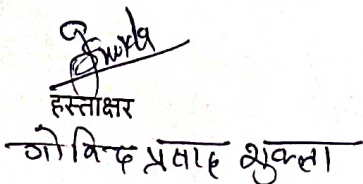 हस्ताक्षर
गोविन्द प्रसाद शुक्ला